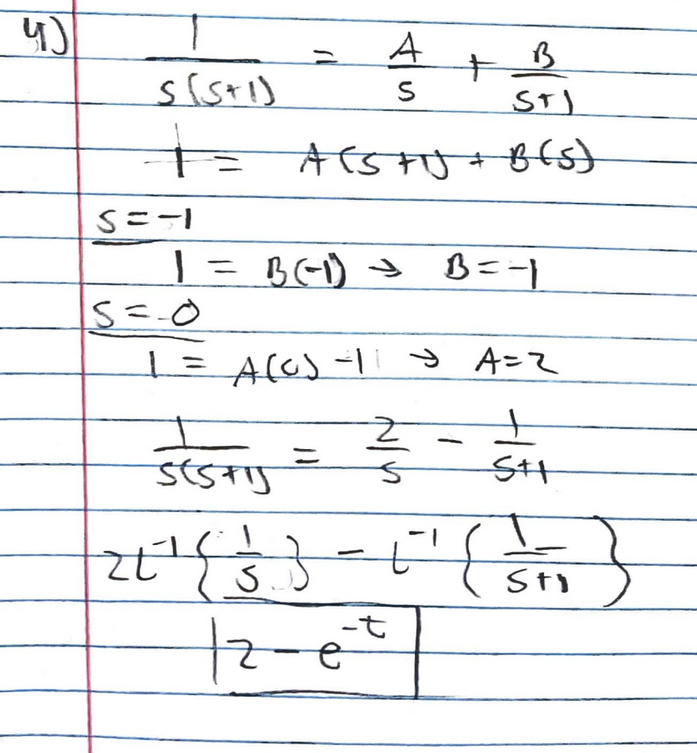 4) 1/(s(s+1)) = A/s + B/(s+1)
1 = A(s+1) + B(s)
s = -1
1 = B(-1) → B = -1
s = 0
1 = A(0) - 1 → A = 2
1/(s(s+1)) = 2/s - 1/(s+1)
2L⁻¹{1/s} - L⁻¹{1/(s+1)}
2 - e^(-t)